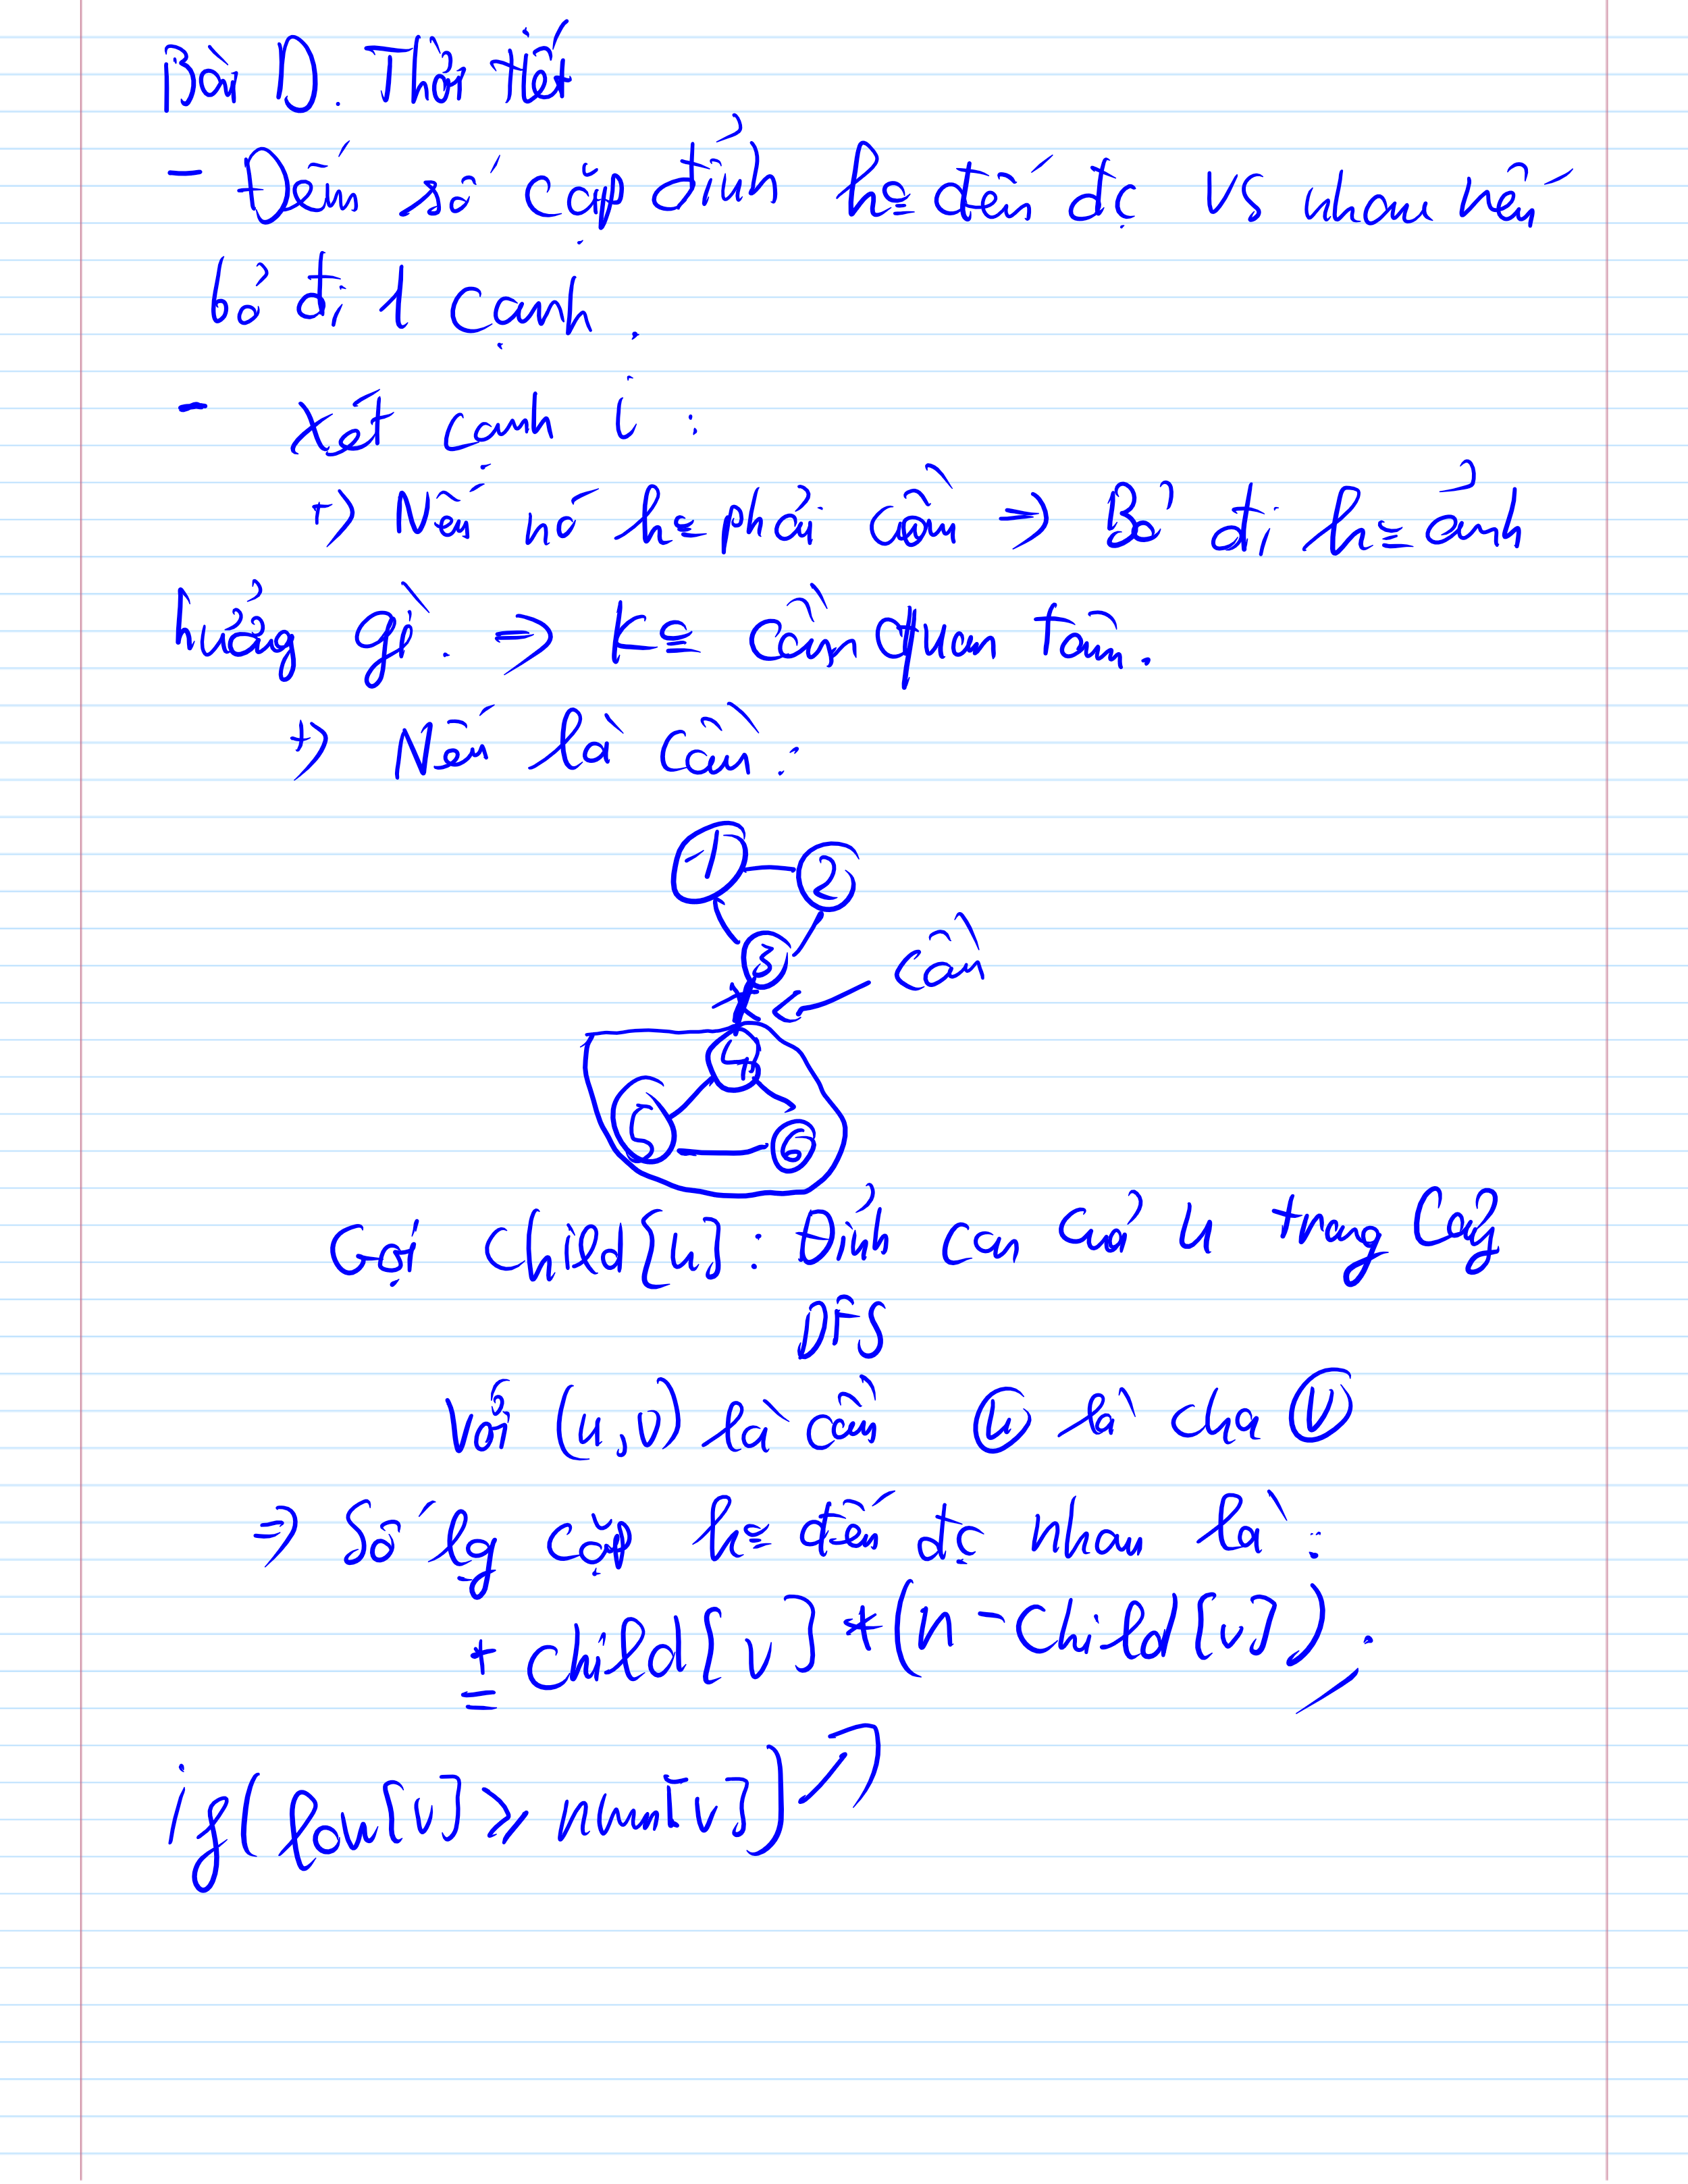 Bài D. Thời tiết
- Đếm số cặp đỉnh k= đến đc vs nhau nếu
bỏ đi 1 cạnh.
- Xét cạnh i:
+) Nếu nó k= phải cầu => Bỏ đi k= ảnh
hưởng gì. => K= cần quan tâm.
+) Nếu là cầu:
1 2
3 cầu
4
5 6
Gọi Child[u]: Đỉnh con của u trong Cây
DFS
Với (u,v) là cầu u là cha v
=> Số lg cặp k= đến đc nhau là:
+ child[v]*(n-child[v]).
if(low[v] ≥ num[v])